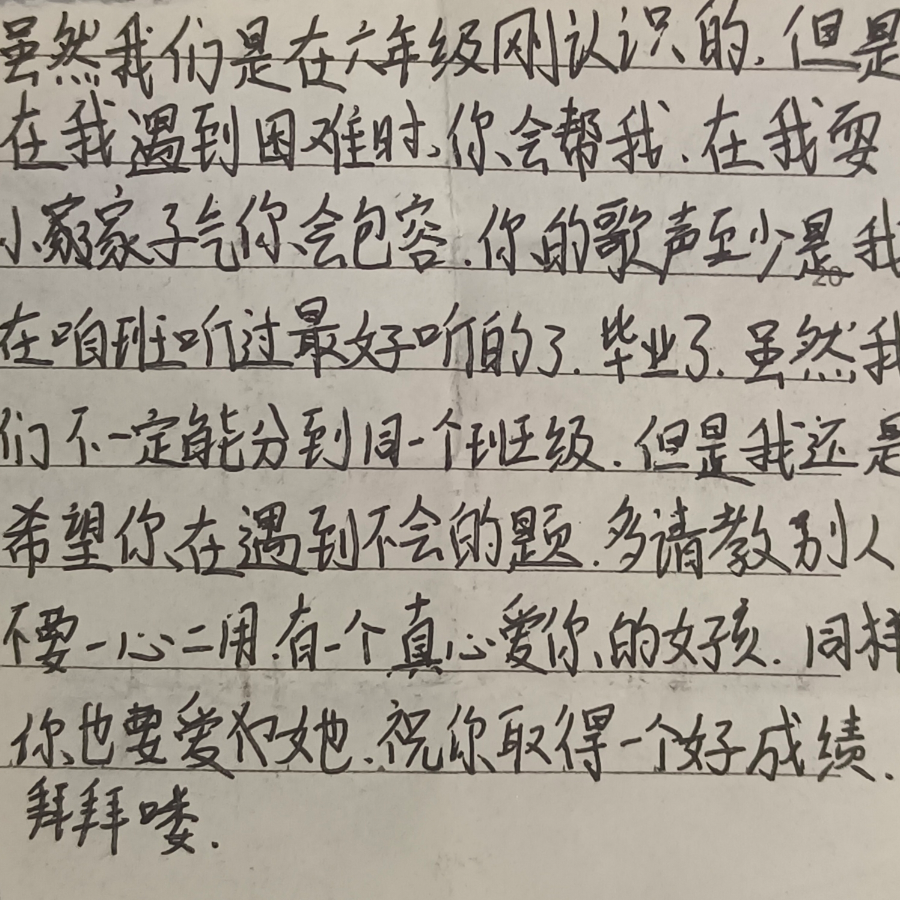 虽然我们是在六年级刚认识的.但是
在我遇到困难时,你会帮我.在我耍
小家子气你会包容.你的歌声至少是我
在咱班听过最好听的了.毕业了.虽然我
们不一定能分到同一个班级.但是我还是
希望你在遇到不会的题.多请教别人
不要一心二用.有一个真心爱你的女孩.同样
你也要爱护她.祝你取得一个好成绩.
拜拜喽.